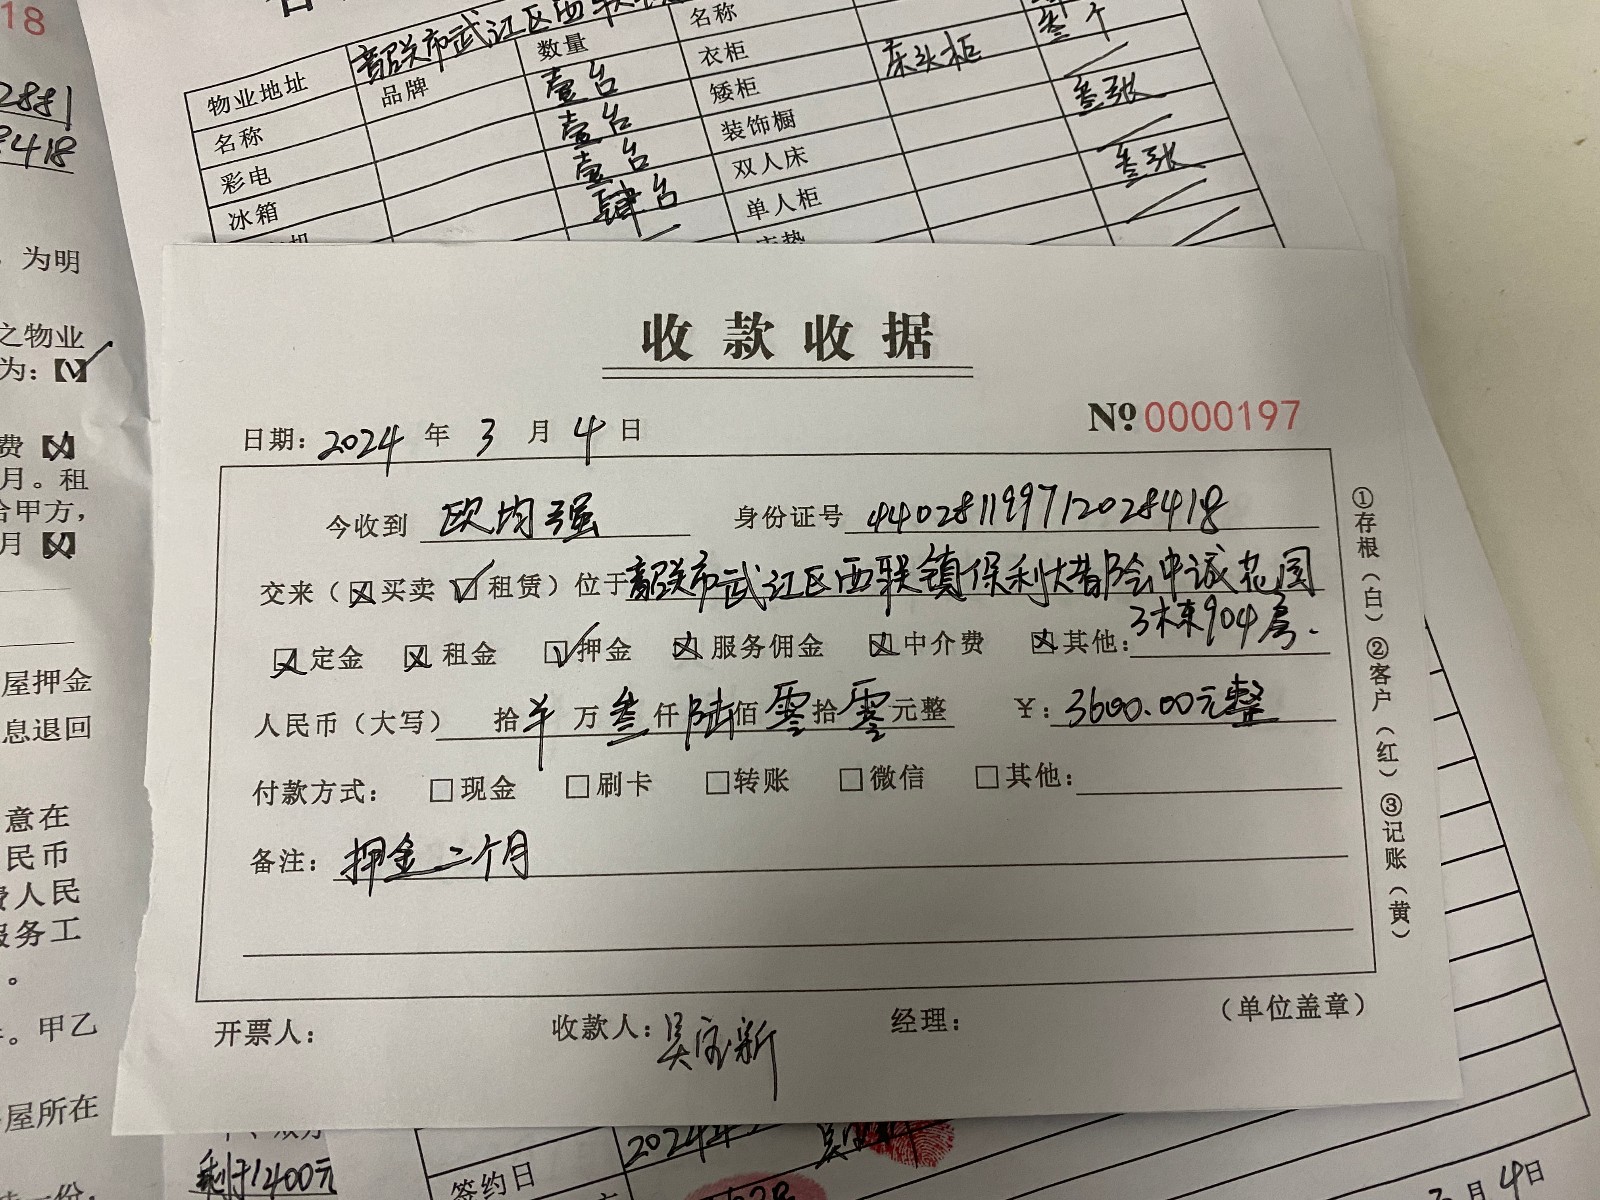 18
2881
8418
为明
之物业
为:【√】
费【X】
月。租
给甲方,
月【X】
屋押金
息退回
意在
民币
费人民
服务工
。
。甲乙
屋所在
剩于1400元
一份,
物业地址 韶关市武江区西联
名称 品牌 数量 名称
彩电 壹台 衣柜 床头柜 叁个
冰箱 壹台 矮柜
壹台 装饰橱 叁张
肆台 双人床
单人柜 叁张
床垫
收款收据
日期: 2024 年 3 月 4 日 №0000197
今收到 欧均强 身份证号 440281199712028418
交来(☒买卖 ☑租赁)位于韶关市武江区西联镇保利大都会中诚花园
☒定金 ☒租金 ☑押金 ☒服务佣金 ☒中介费 ☒其他: 3栋904房.
人民币(大写) 拾 羊 万 叁 仟 陆 佰 零 拾 零 元整 ¥: 3600.00元整
付款方式: □现金 □刷卡 □转账 □微信 □其他:
备注: 押金二个月
开票人: 收款人: 吴宝新 经理: (单位盖章)
①存根(白)②客户(红)③记账(黄)
签约日 2024年
3月4日